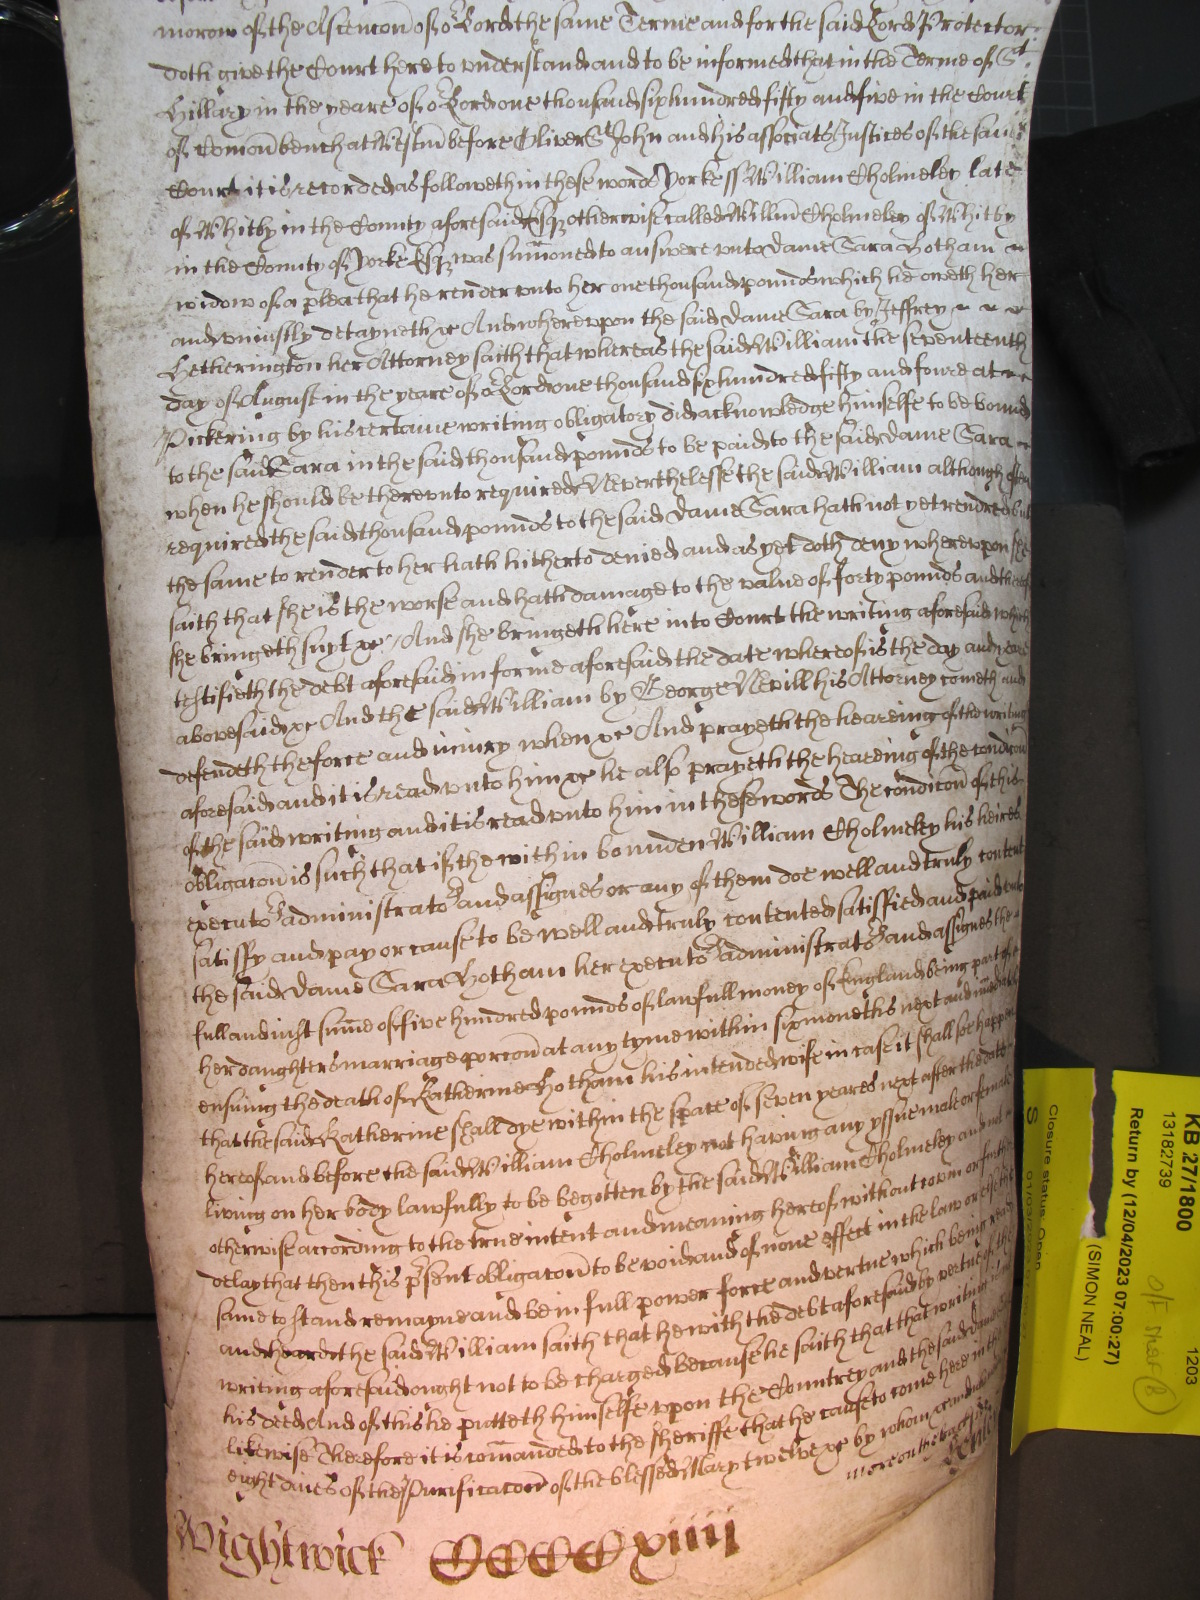 morow of the Ascencon of o Lord the same Terme and for the said Lord Protector
doth give the Court here to understand and to be informed that in the Terme of St
Hillary in the yeare of o Lord one thousand six hundred fifty and five in the Court
of Comon bench at Westm before Oliver St John and his associats Justices of the same
Court it is recorded as followeth in these words Yorke ss William Cholmeley late
of Whitby in the County aforesaid Esq otherwise called Willm Cholmeley of Whitby
in the County of Yorke Esq was sumoned to answere unto Dame Sara Hotham
widow of a plea that he render unto her one thousand pounds which he oweth her
and uniustly detayneth &c And whereupon the said Dame Sara by Jeffrey
Hetherington her Attorney saith that whereas the said William the seventeenth
day of August in the yeare of o Lord one thousand six hundred fifty and foure at
Pickering by his certaine writing obligatory did acknowledge himselfe to be bound
to the said Sara in the said thousand pounds to be paid to the said dame Sara
when he should be thereunto required Neverthelesse the said William although often
required the said thousand pounds to the said Dame Sara hath not yet rendred but
the same to render to her hath hitherto denied and as yet doth deny whereupon she
saith that she is the worse and hath damage to the value of forty pounds and thereof
she bringeth suyt &c And she bringeth here into Court the writing aforesaid which
testifieth the debt aforesaid in forme aforesaid the date whereof is the day and yeare
abovesaid &c And the said William by George Nevill his Attorney cometh and
defendeth the force and iniury when &c And prayeth the heareing of the writing
aforesaid and it is read unto him &c he also prayeth the heareing of the condicon
of the said writing and it is read unto him in these words The condicon of this
obligacon is such that if the within bounden William Cholmeley his heires
executo administrato and assignes or any of them doe well and truly content
satisfy and pay or cause to be well and truly contented satisfied and paid unto
the said Dame Sara Hotham her executo administrato and assignes the
full and iust sume of five hundred pounds of lawfull money of England being part of
her daughters marriage porcon at any tyme within six moneths next and imediatly
ensuing the death of Katherine Hotham his intended wife in case it shall soe happen
that the said Katherine shall dye within the space of seven yeares next after the date
hereof and before the said William Cholmeley not having any yssue male or female
living on her body lawfully to be begotten by the said William Cholmeley and not
otherwise according to the true intent and meaning hereof without covin or further
delay that then this psent obligacon to be void and of none effect in the law or else the
same to stand remayne and be in full power force and vertue which being read
and heard the said William saith that he with the debt aforesaid by vertue of the
writing aforesaid ought not to be charged because he saith that that writing is not
his deed And of this he putteth himselfe upon the Countrey and the said Dame Sara
likewise Therefore it is comanded to the sheriffe that he cause to come here in the
eight daies of the Purificacon of the blessed Mary twelve &c by whom
more on the backe
Wightwick CCCCxiiij
KB 27/1800 1203
13182739
Return by (12/04/2023 07:00:27)
(SIMON NEAL)
Closure status Open
S